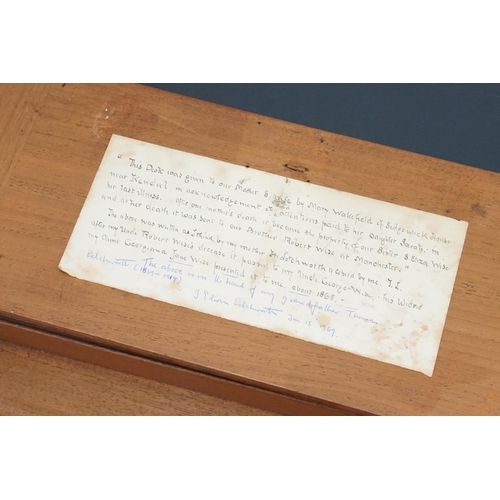 "This Desk was given to our Mother E. Wise by Mary Wakefield of Sedgewick House
near Kendal, in acknowledgement of attentions paid to her Daughter Sarah, in
her last illness. after our mother's death it became the property of our Sister E Eliza Wise
and at her death it was sent to our Brother Robert Wise at Manchester."
The above was written as I think by my mother
after my Uncle Robert Wise's decease it passed to my Uncle George Wise, his Widow
my Aunt Georgiana Jane Wise presented it to me about 1885."
The above is in the hand of my grandfather Thomas
(1819-
J Edwin Jan 18 1969.